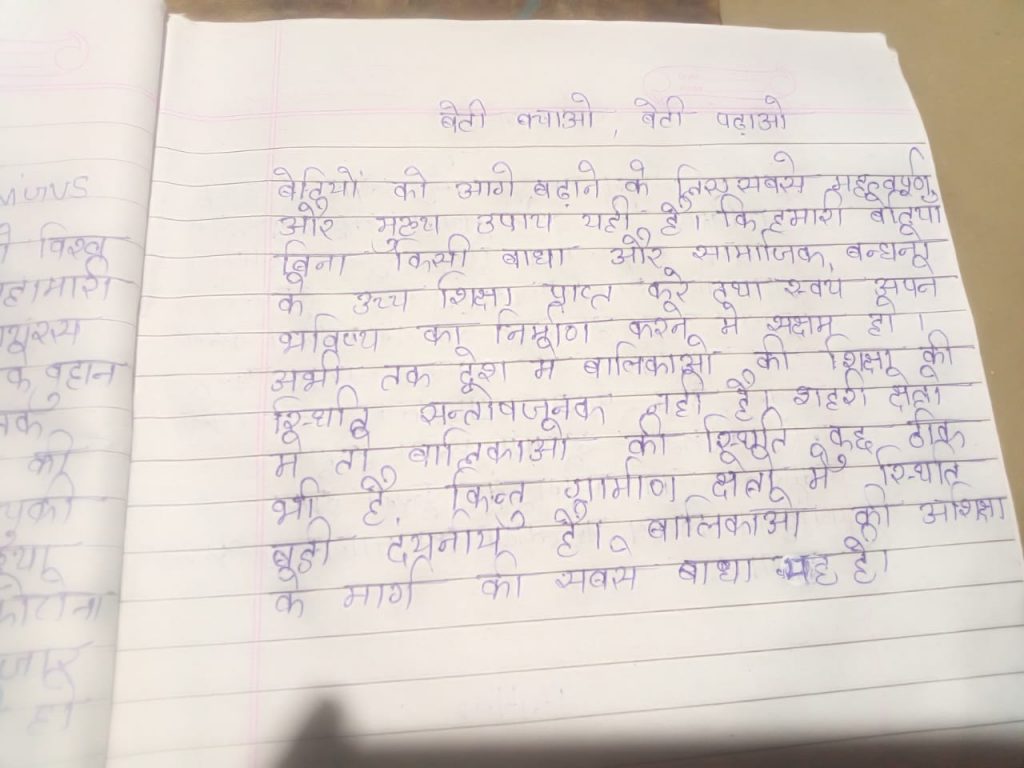 बेटी बचाओ, बेटी पढ़ाओ
बेटियों को आगे बढ़ाने के लिए सबसे महत्वपूर्ण
और मुख्य उपाय यही है। कि हमारी बेटिया
बिना किसी बाधा और सामाजिक बन्धनो
के उच्च शिक्षा प्राप्त करे तथा स्वय अपने
भविष्य का निर्माण करने मे सक्षम हो।
अभी तक देश मे बालिकाओ की शिक्षा की
स्थिति सन्तोषजनक नही है। शहरी क्षेत्रो
मे तो बालिकाओ की स्थिति कुछ ठीक
भी है, किन्तु ग्रामीण क्षेत्रो मे स्थिति
बड़ी दयनीय है। बालिकाओ की अशिक्षा
के मार्ग की सबसे बाधा यह है।
विश्व
महामारी
के वुहान
की